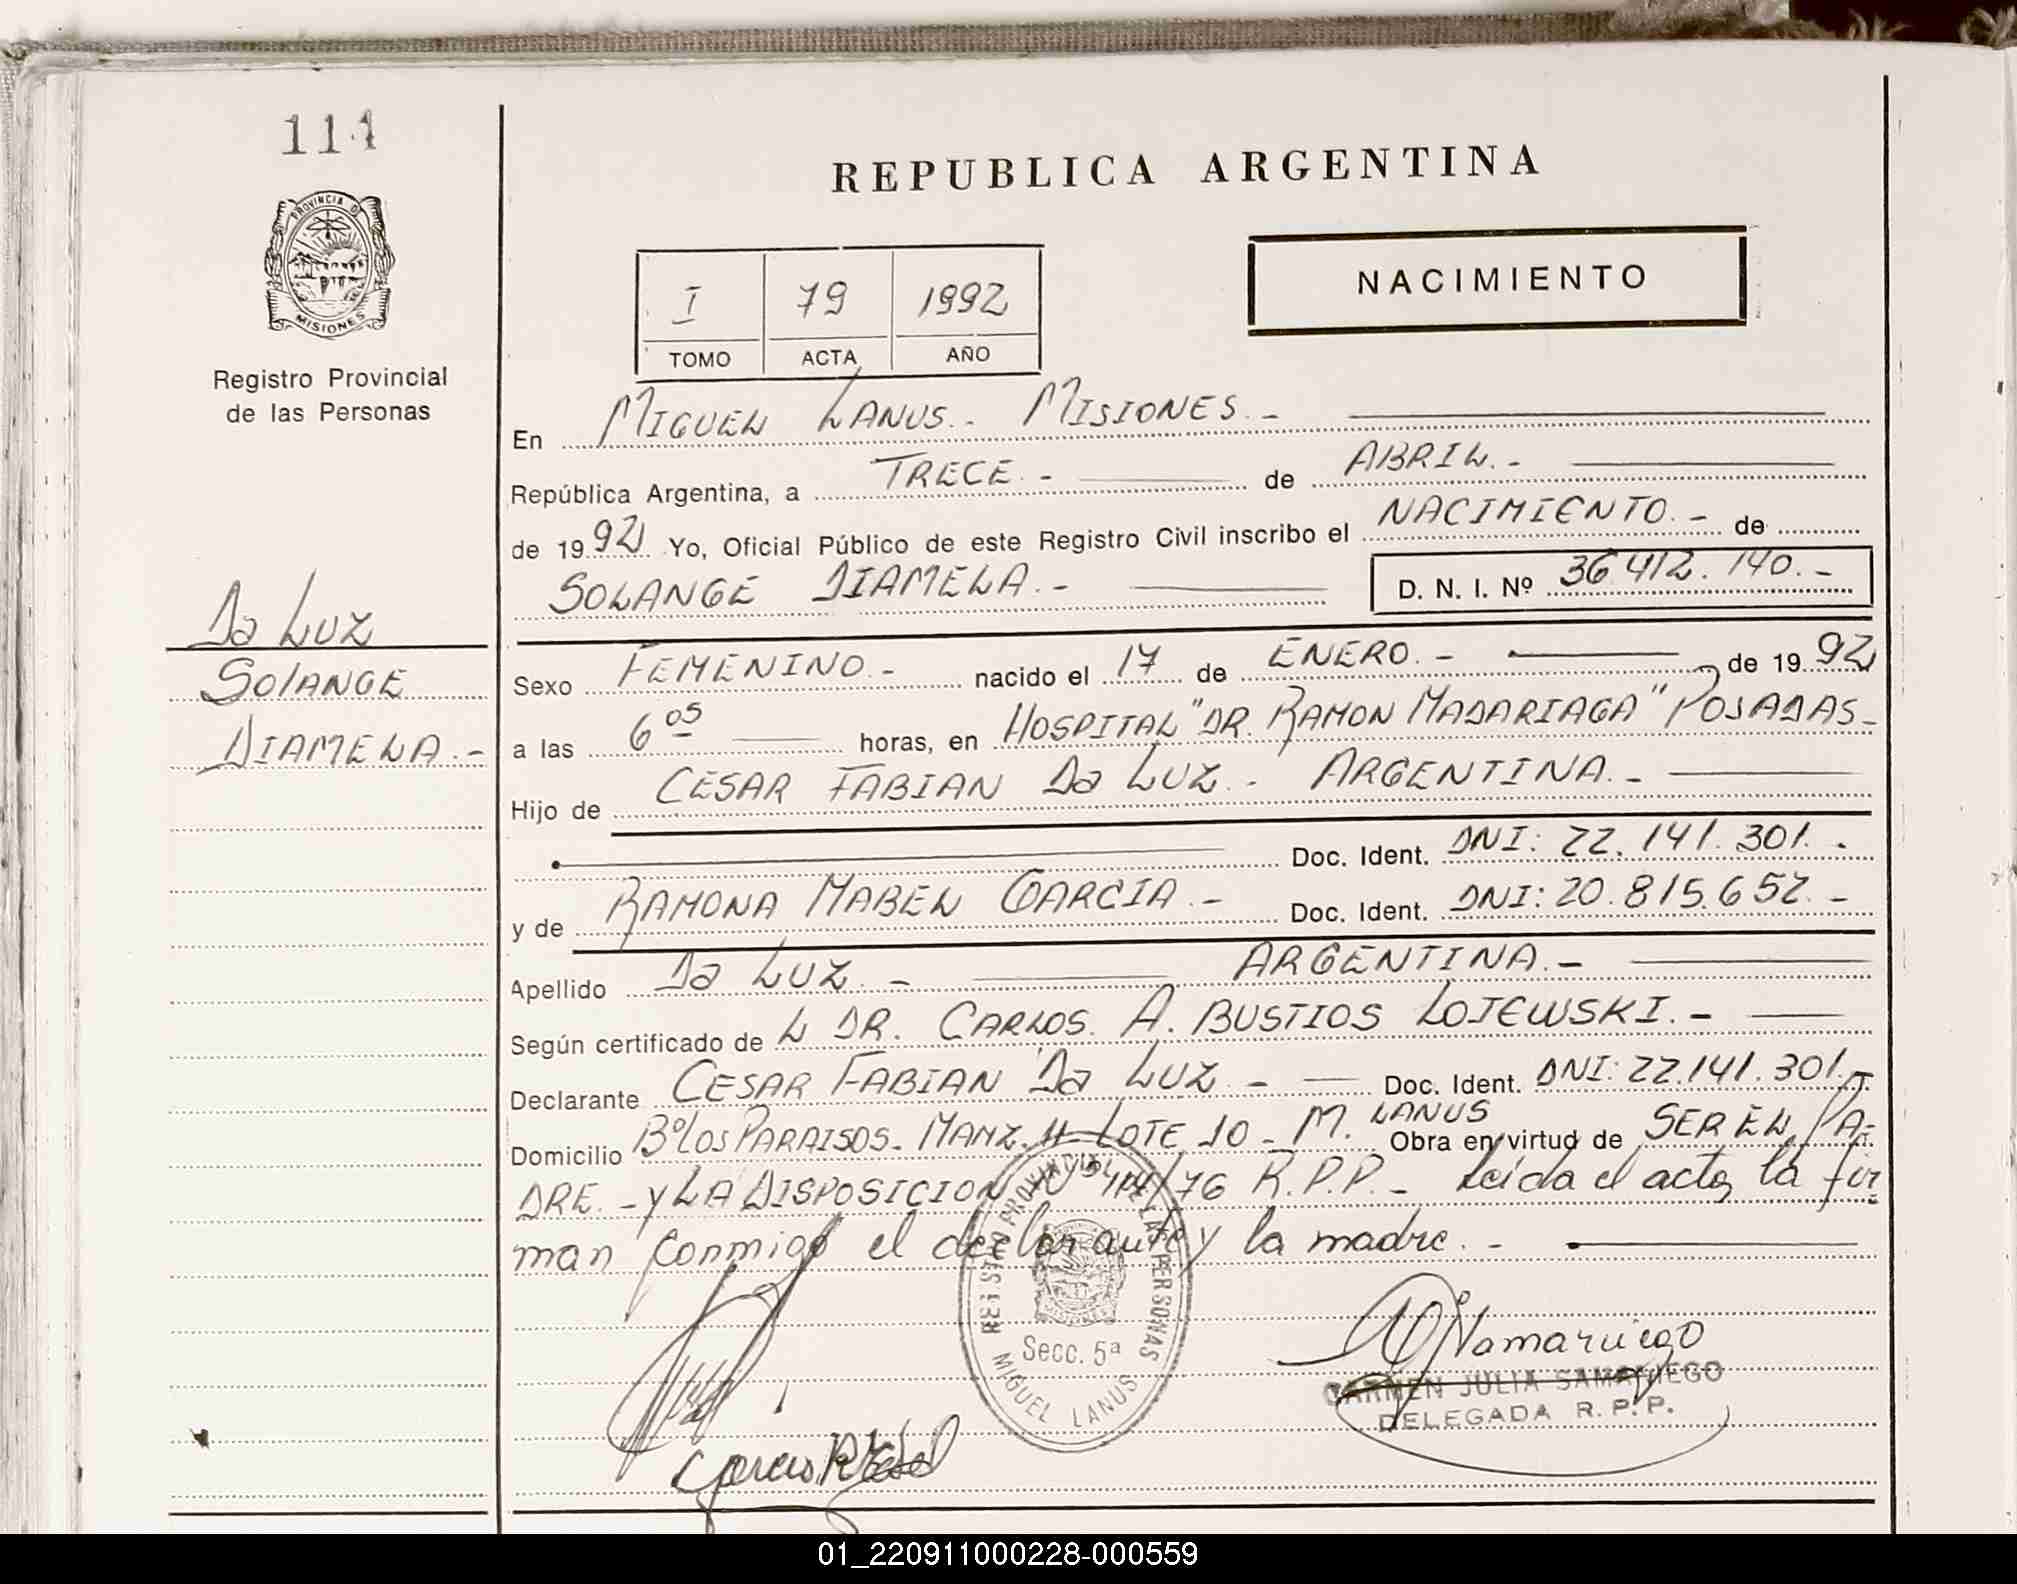 114
PROVINCIA D
MISIONES
Registro Provincial
de las Personas
Da LUZ
SOLANGE
DIAMELA.-
REPUBLICA ARGENTINA
I 79 1992
TOMO ACTA AÑO
NACIMIENTO
En MIGUEL LANUS.- MISIONES.-
República Argentina, a TRECE.- de ABRIL.-
de 1992 Yo, Oficial Público de este Registro Civil inscribo el NACIMIENTO.- de
SOLANGE DIAMELA.- D. N. I. Nº 36.412.140.-
Sexo FEMENINO.- nacido el 17 de ENERO.- de 1992
a las 6 05 horas, en HOSPITAL "DR. RAMON MADARIAGA" POSADAS-
Hijo de CESAR FABIAN Da LUZ.- ARGENTINA.-
Doc. Ident. DNI: 22.141.301.
y de RAMONA MABEL GARCIA.- Doc. Ident. DNI: 20.815.652.-
Apellido Da LUZ.- ARGENTINA.-
Según certificado de L DR. CARLOS A. BUSTIOS LOJEWSKI.-
Declarante CESAR FABIAN Da LUZ.- Doc. Ident. DNI: 22.141.301.-
Domicilio Bº LOS PARAISOS- MANZ. LOTE 10- M. LANUS Obra en virtud de SER EL PA-
DRE.- Y LA DISPOSICION /76 R.P.P.- Leida el acta, la fir
man conmigo el declarante y la madre.-
REGISTRO PROVINCIAL DE LAS PERSONAS
Secc. 5ª
MIGUEL LANUS
Samaniego
CARMEN JULIA SAMANIEGO
DELEGADA R.P.P.
01_220911000228-000559